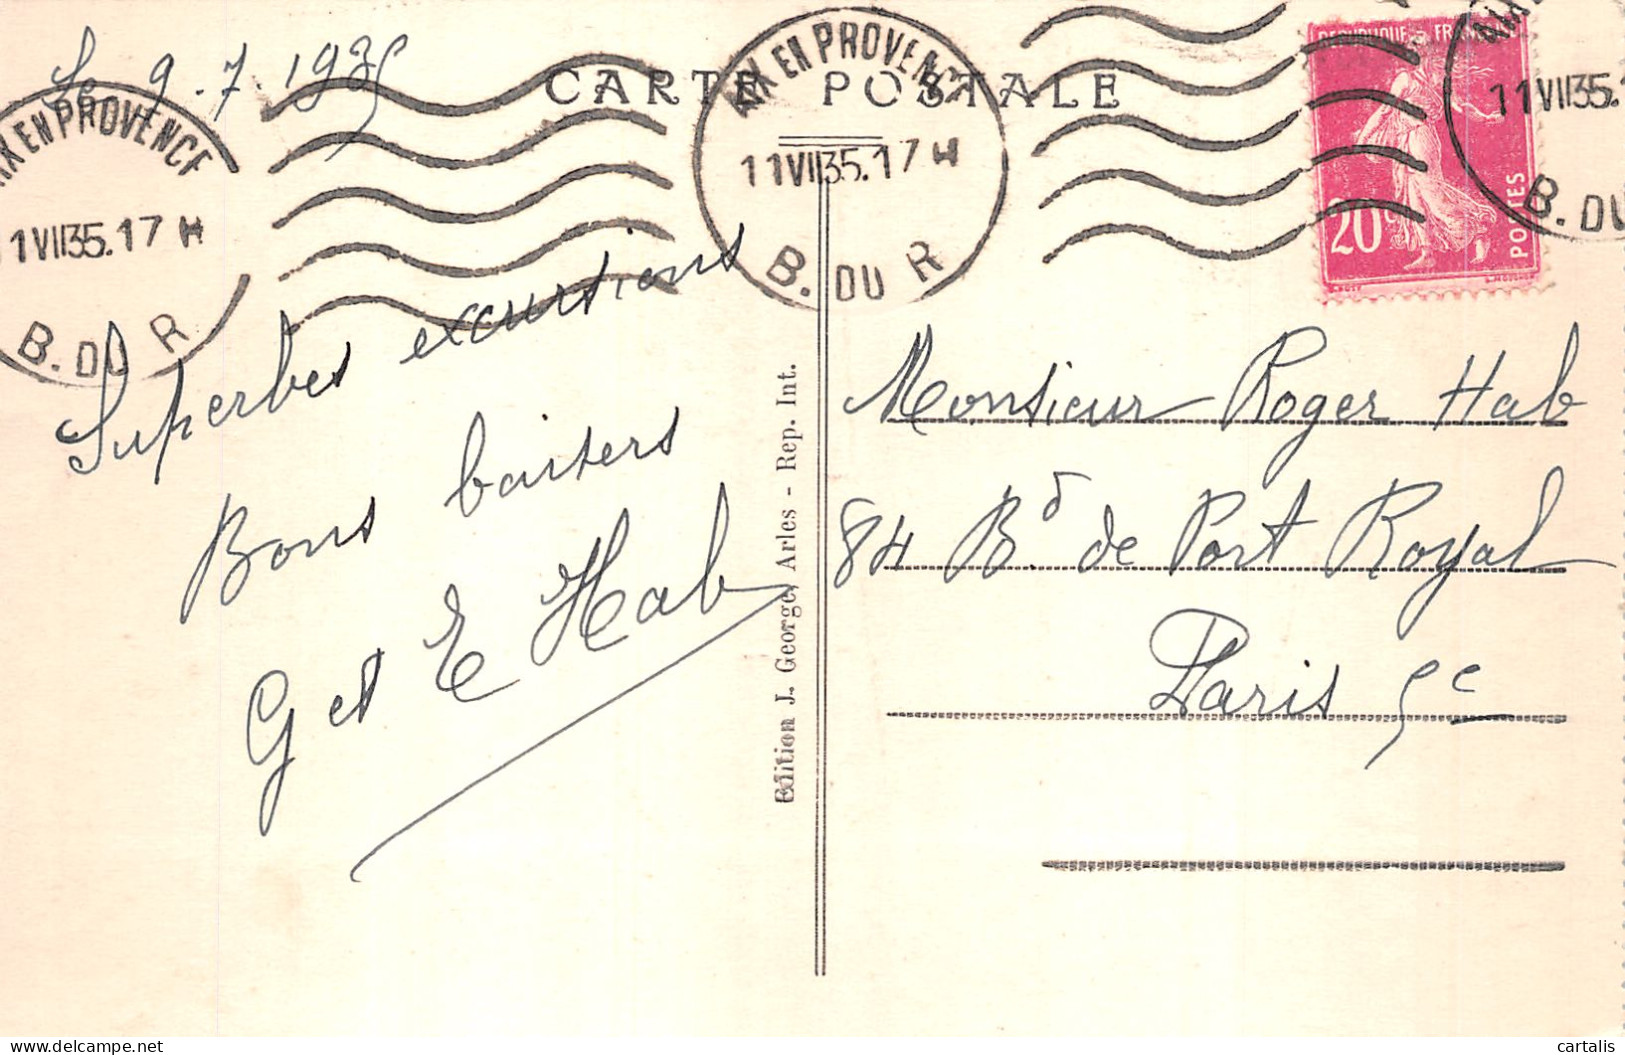 Le 9.7.1935
CARTE POSTALE
AIX EN PROVENCE
11 VII 35. 17 H
B. DU R
AIX EN PROVENCE
1 VII 35. 17 H
B. DU R
REPUBLIQUE FRANC
20c
POSTES
11 VII 35. 1
B. DU
Superbes excursions
Bons baisers
G et E Hab
Edition J. George, Arles - Rep. Int.
Monsieur Roger Hab
84 Bd de Port Royal
Paris 5e
cartalis